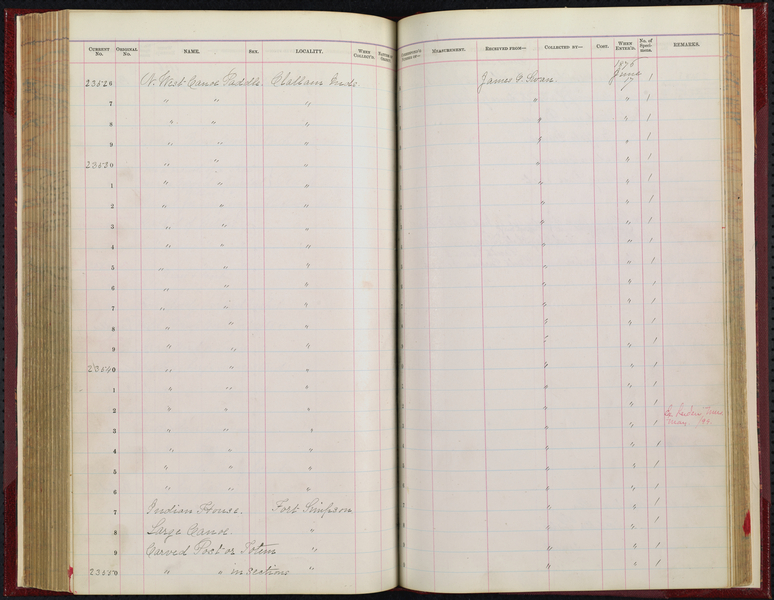 CURRENT No. ORIGINAL No. NAME. SEX. LOCALITY. WHEN COLLECT'D. MEASUREMENT. RECEIVED FROM— COLLECTED BY— COST. WHEN ENTER'D. No. of Specimens. REMARKS.
1876
23526 N. West Canoe Paddle. Chatham Inds. James G. Swan June 17 1
7 " " " " " 1
8 " " " " " 1
9 " " " " " 1
23530 " " " " " 1
1 " " " " " 1
2 " " " " " 1
3 " " " " " 1
4 " " " " " 1
5 " " " " " 1
6 " " " " " 1
7 " " " " " 1
8 " " " " " 1
9 " " " " " 1
23540 " " " " " 1
1 " " " " " 1
2 " " " " " 1
3 " " " " " 1 May
4 " " " " " 1
5 " " " " " 1
6 " " " " " 1
7 Indian House. Fort Simpson " " 1
8 Large Canoe. " " " 1
9 Carved Post or Totem " " " 1
23550 " " in sections " " " 1